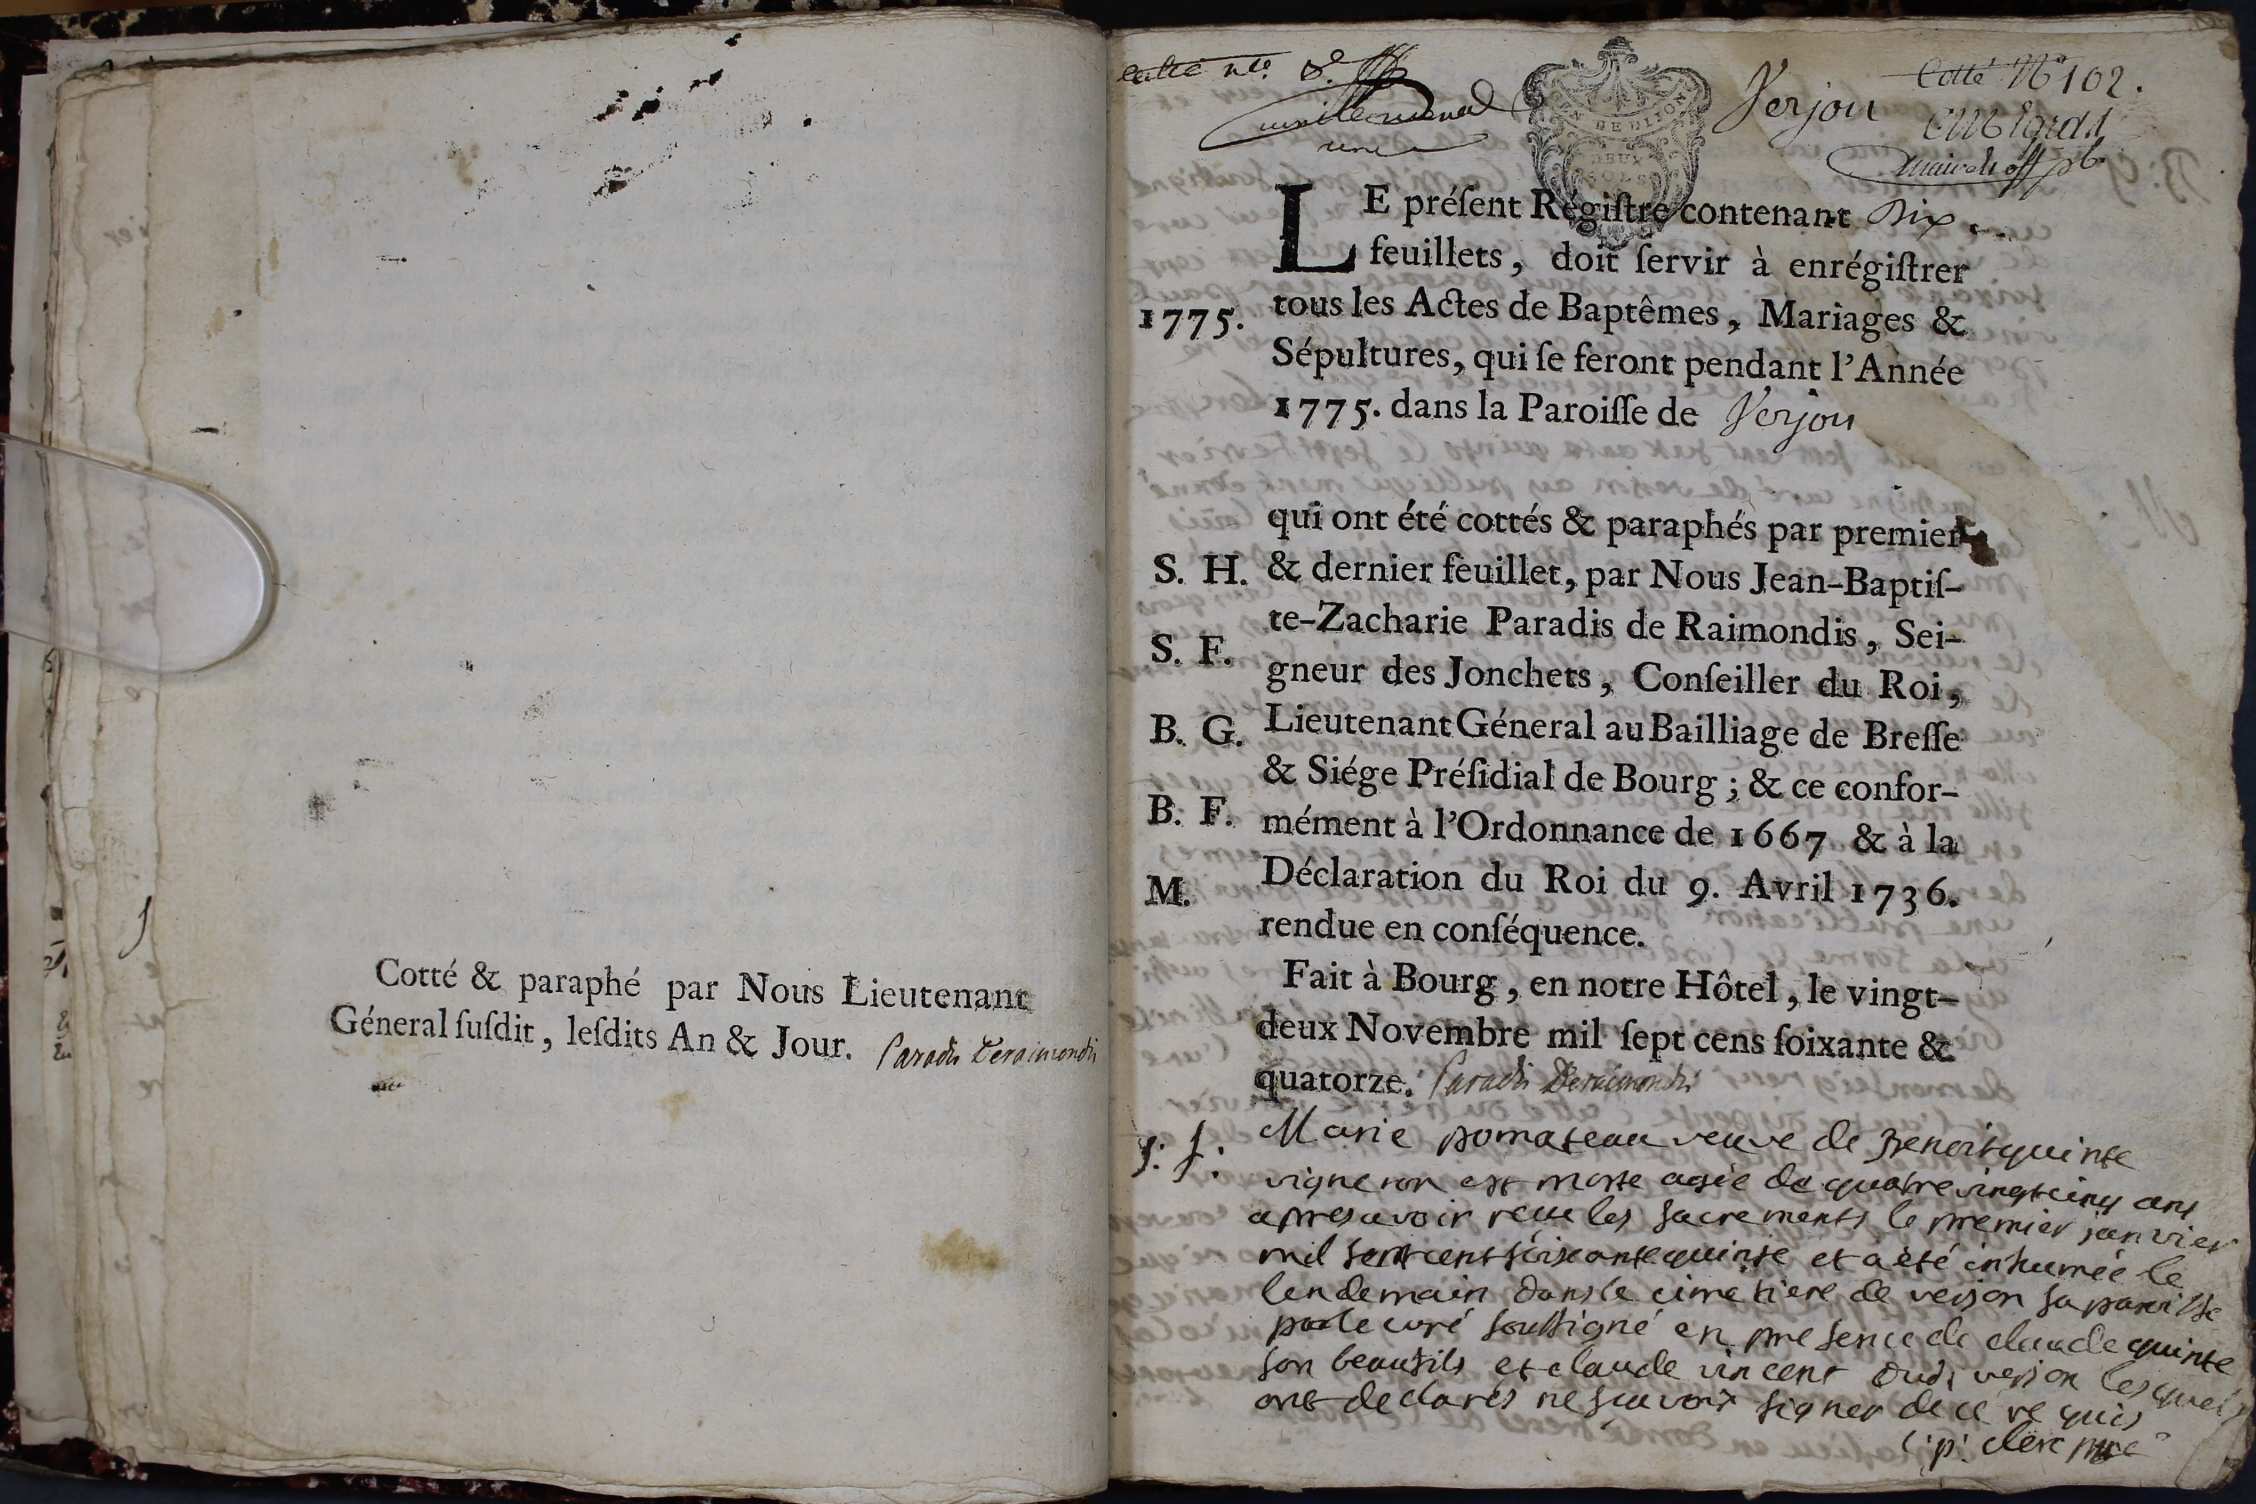 Cotté & paraphé par Nous Lieutenant
Géneral ſuſdit, leſdits An & Jour. Paradis Deraimondis
Cotté nto. 8e
Cotté No 102.
Verjon
DEUX
SOLS
LE préſent Régiſtre contenant Dix
feuillets, doit ſervir à enrégiſtrer
1775.
tous les Actes de Baptêmes, Mariages &
Sépultures, qui ſe feront pendant l'Année
1775. dans la Paroiſſe de Verjon
qui ont été cottés & paraphés par premier
S. H.
& dernier feuillet, par Nous Jean-Baptiſ-
te-Zacharie Paradis de Raimondis, Sei-
S. F.
gneur des Jonchets, Conſeiller du Roi,
B. G.
Lieutenant Géneral au Bailliage de Breſſe
& Siége Préſidial de Bourg; & ce confor-
B. F.
mément à l'Ordonnance de 1667 & à la
M.
Déclaration du Roi du 9. Avril 1736.
rendue en conſéquence.
Fait à Bourg, en notre Hôtel, le vingt-
deux Novembre mil ſept cens ſoixante &
quatorze. Paradis Deraimondis
s: f:
Marie pomateau veuve de Benoit quinte
vigneron est morte agée de quatre vingt cinq ans
apres avoir reçu les sacrements le premier janvier
mil sept cent soixante quinse et a été inhumée le
lendemain dans le cimetiere de verjon sa paroisse
par le curé soussigné en presence de claude quinte
son beaufils et claude vincent dudt verjon lesquels
ont declarés ne sçavoir signer de ce requis
clerc